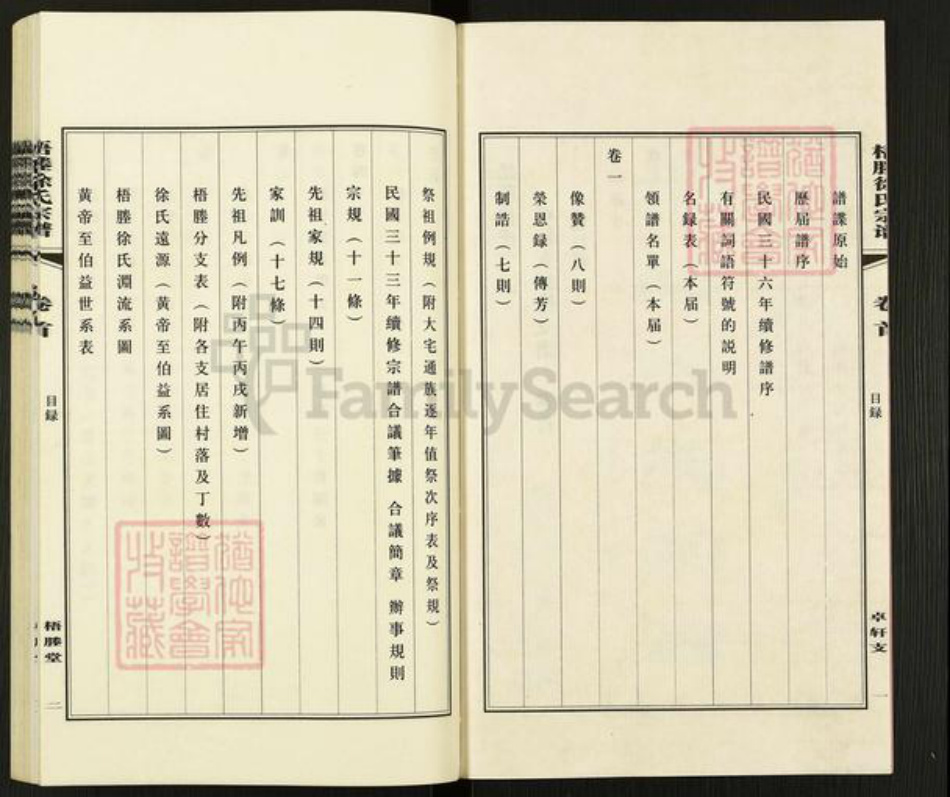 譜諜原始
歷屆譜序
民國三十六年續修譜序
有關詞語符號的説明
名録表（本屆）
領譜名單（本届）
卷一
像贊（八則）
榮恩録（傳芳）
制誥（七則）
祭祖例規（附大宅通族逐年值祭次序表及祭規）
民國三十三年續修宗譜合議筆據 合議簡章 辦事規則
宗規（十一條）
先祖家規（十四則）
家訓（十七條）
先祖凡例（附丙午丙戌新增）
梧塍分支表（附各支居住村落及丁數）
徐氏遠源（黄帝至伯益系圖）
梧塍徐氏淵流系圖
黄帝至伯益世系表
梧塍徐氏宗谱
卷首
目録
卓轩支
一
梧塍徐氏宗谱
卷首
目録
梧塍堂
二
FamilySearch